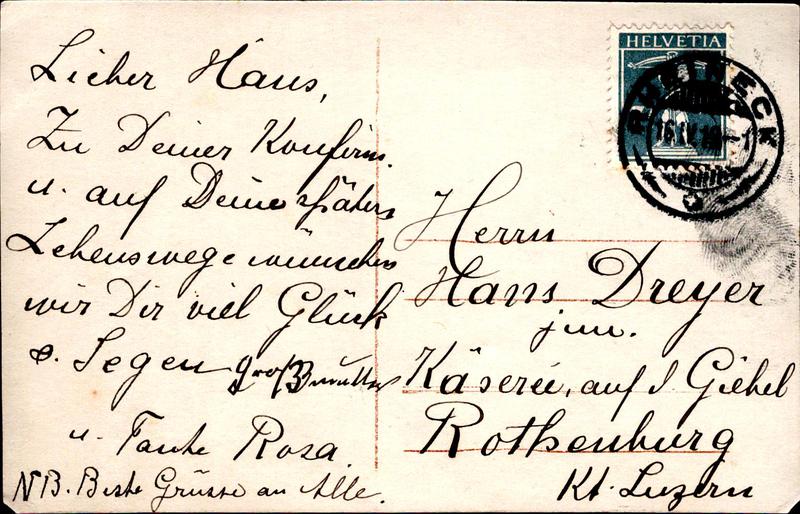 Lieber Hans,
Zu Deiner Konfirm.
u. auf Deine spätern
Lebenswege wünschen
wir Dir viel Glück
e. Segen Großmutter
u. Tante Rosa.
NB. Beste Grüsse an Alle.
HELVETIA
RHEINECK
Herrn
Hans Dreyer
jun.
Käserei, auf d Giebel
Rothenburg
Kt. Luzern